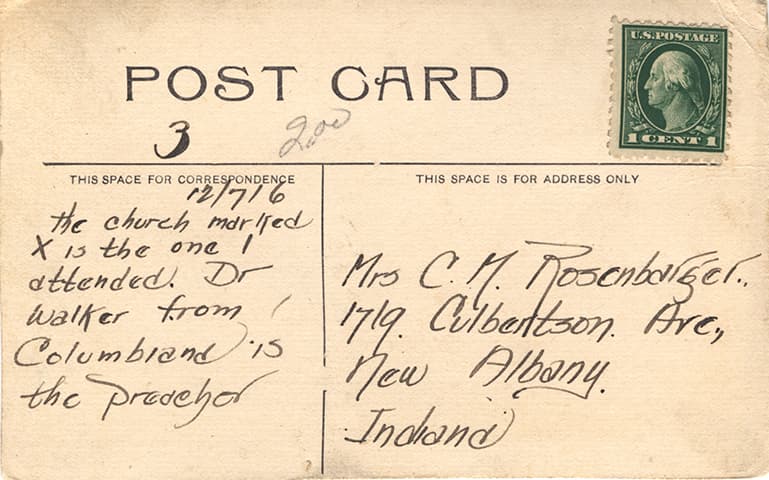 U.S. POSTAGE
1 CENT 1
POST CARD
3
2.00
THIS SPACE FOR CORRESPONDENCE
THIS SPACE IS FOR ADDRESS ONLY
12/7/16
the church marked
X is the one I
attended. Dr
Walker from
Columbiana is
the preacher
Mrs C. M. Rosenbarger.
1719. Culbertson. Ave.,
New Albany.
Indiana